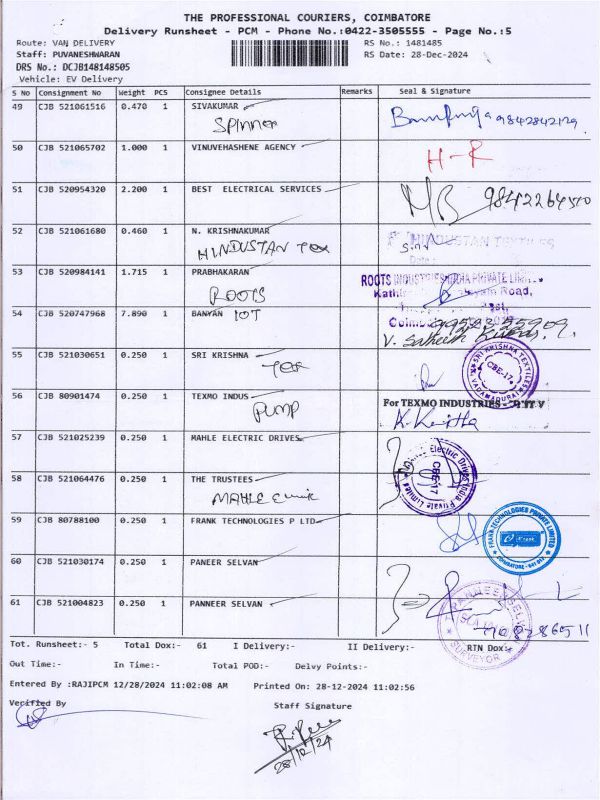 THE PROFESSIONAL COURIERS, COIMBATORE
Delivery Runsheet - PCM - Phone No.:0422-3505555 - Page No.:5
Route: VAN DELIVERY RS No.: 1481485
Staff: PUVANESHWARAN RS Date: 28-Dec-2024
DRS No.: DCJB148148505
Vehicle: EV Delivery
S No Consignment No Weight PCS Consignee Details Remarks Seal & Signature
49 CJB 521061516 0.470 1 SIVAKUMAR
Spinner 9842842129
50 CJB 521065702 1.000 1 VINUVEHASHENE AGENCY
H-R
51 CJB 520954320 2.200 1 BEST ELECTRICAL SERVICES
52 CJB 521061680 0.460 1 N. KRISHNAKUMAR
HINDUSTAN TEX HINDUSTAN TEXTILES
53 CJB 520984141 1.715 1 PRABHAKARAN
ROOTS INDUSTRIES INDIA PRIVATE LIMITED
ROOTS
54 CJB 520747968 7.890 1 BANYAN IOT
55 CJB 521030651 0.250 1 SRI KRISHNA
TEX SRI KRISHNA TEXTILES CBE-17 VADAMADURAI
56 CJB 80901474 0.250 1 TEXMO INDUS
For TEXMO INDUSTRIES
PUMP
57 CJB 521025239 0.250 1 MAHLE ELECTRIC DRIVES
Electric Drives India Private Limited CBE-17
58 CJB 521064476 0.250 1 THE TRUSTEES
MAHLE clinic
59 CJB 80788100 0.250 1 FRANK TECHNOLOGIES P LTD
FRANK TECHNOLOGIES PRIVATE LIMITED
60 CJB 521030174 0.250 1 PANEER SELVAN
61 CJB 521004823 0.250 1 PANNEER SELVAN
SURVEYOR
Tot. Runsheet:- 5 Total Dox:- 61 I Delivery:- II Delivery:- RTN Dox:-
Out Time:- In Time:- Total POD:- Delvy Points:-
Entered By :RAJIPCM 12/28/2024 11:02:08 AM Printed On: 28-12-2024 11:02:56
Verified By Staff Signature
28/12/24